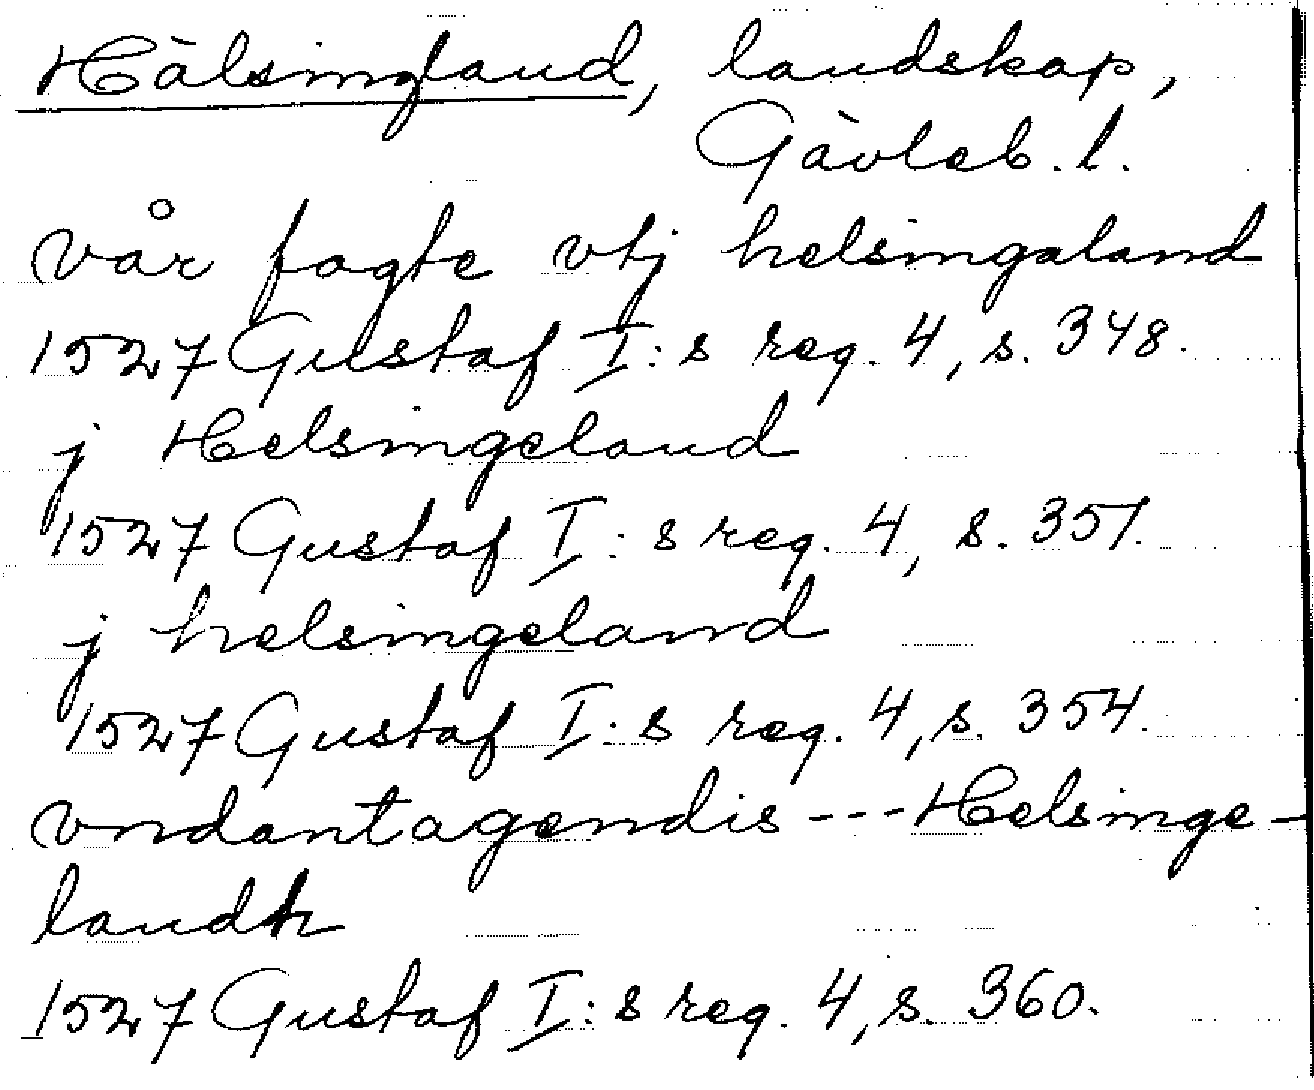 Hälsingland, landskap,
Gävleb. l.
vår fogte vtj helsingaland
1527 Gustaf I:s reg. 4, s. 348.
j Helsingeland
1527 Gustaf I:s reg. 4, s. 351.
j helsingeland
1527 Gustaf I:s reg. 4, s. 354.
vndantagendis --- Helsinge-
landh
1527 Gustaf I:s reg. 4, s. 360.